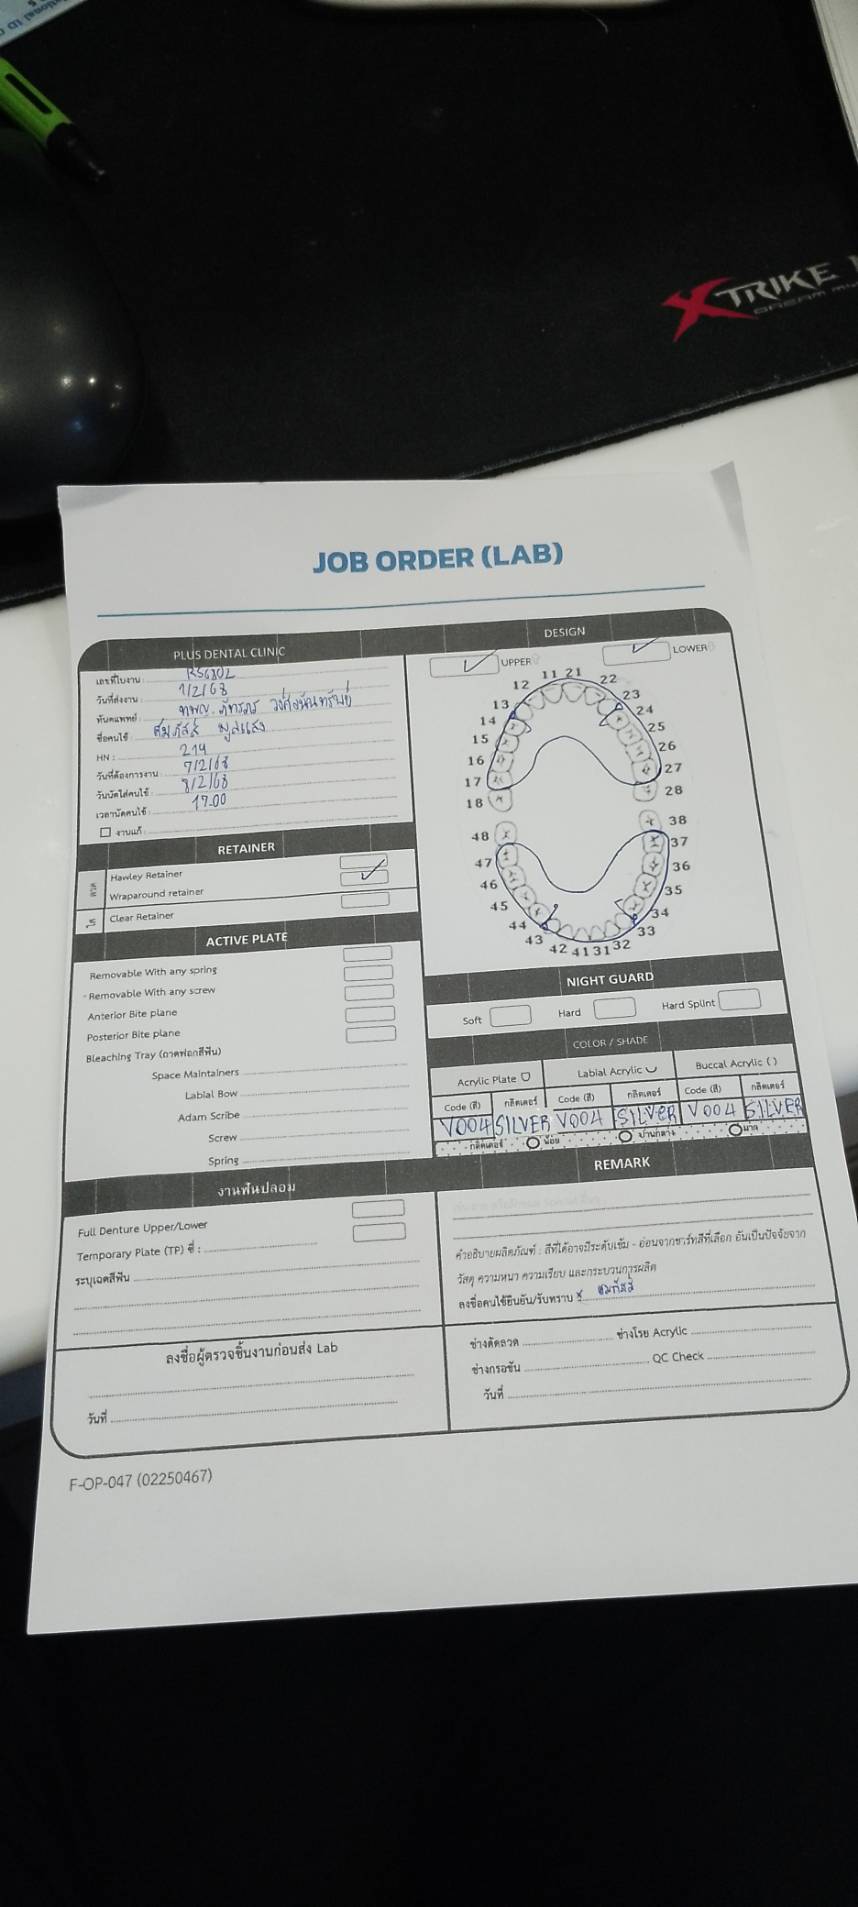 ational ID
XTRIKE
JOB ORDER (LAB)
PLUS DENTAL CLINIC
เลขที่ใบงาน RS6802
วันที่ส่งงาน 1/2/68
ทันตแพทย์ ทพญ. ภัทรภร
ชื่อคนไข้
HN : 214
วันที่ต้องการงาน 7/2/68
วันนัดใส่คนไข้ 8/2/68
เวลานัดคนไข้ 17.00
งานแก้
RETAINER
ลวด
Hawley Retainer
Wraparound retainer ✓
ใส
Clear Retainer
ACTIVE PLATE
Removable With any spring
Removable With any screw
Anterior Bite plane
Posterior Bite plane
Bleaching Tray (ถาดฟอกสีฟัน)
Space Maintainers
Labial Bow
Adam Scribe
Screw
Spring
งานฟันปลอม
Full Denture Upper/Lower
Temporary Plate (TP) ซี่ :
ระบุเฉดสีฟัน
ลงชื่อผู้ตรวจชิ้นงานก่อนส่ง Lab
วันที่
DESIGN
✓ UPPER ✓ LOWER
11 21
12 22
13 23
14 24
15 25
16 26
17 27
18 28
48 38
47 37
46 36
45 35
44 34
43 33
42 41 31 32
NIGHT GUARD
Soft Hard Hard Splint
COLOR / SHADE
Acrylic Plate Labial Acrylic Buccal Acrylic ( )
Code (สี) กลิตเตอร์ Code (สี) กลิตเตอร์ Code (สี) กลิตเตอร์
V004 SILVER V004 SILVER V004 SILVER
กลิตเตอร์ น้อย ปานกลาง มาก
REMARK
คำอธิบายผลิตภัณฑ์ : สีที่ได้อาจมีระดับเข้ม - อ่อนจากชาร์ทสีที่เลือก อันเป็นปัจจัยจาก
วัสดุ ความหนา ความเรียบ และกระบวนการผลิต
ลงชื่อคนไข้ยืนยัน/รับทราบ x
ช่างดัดลวด ช่างโรย Acrylic
ช่างกรอขัด QC Check
วันที่
F-OP-047 (02250467)